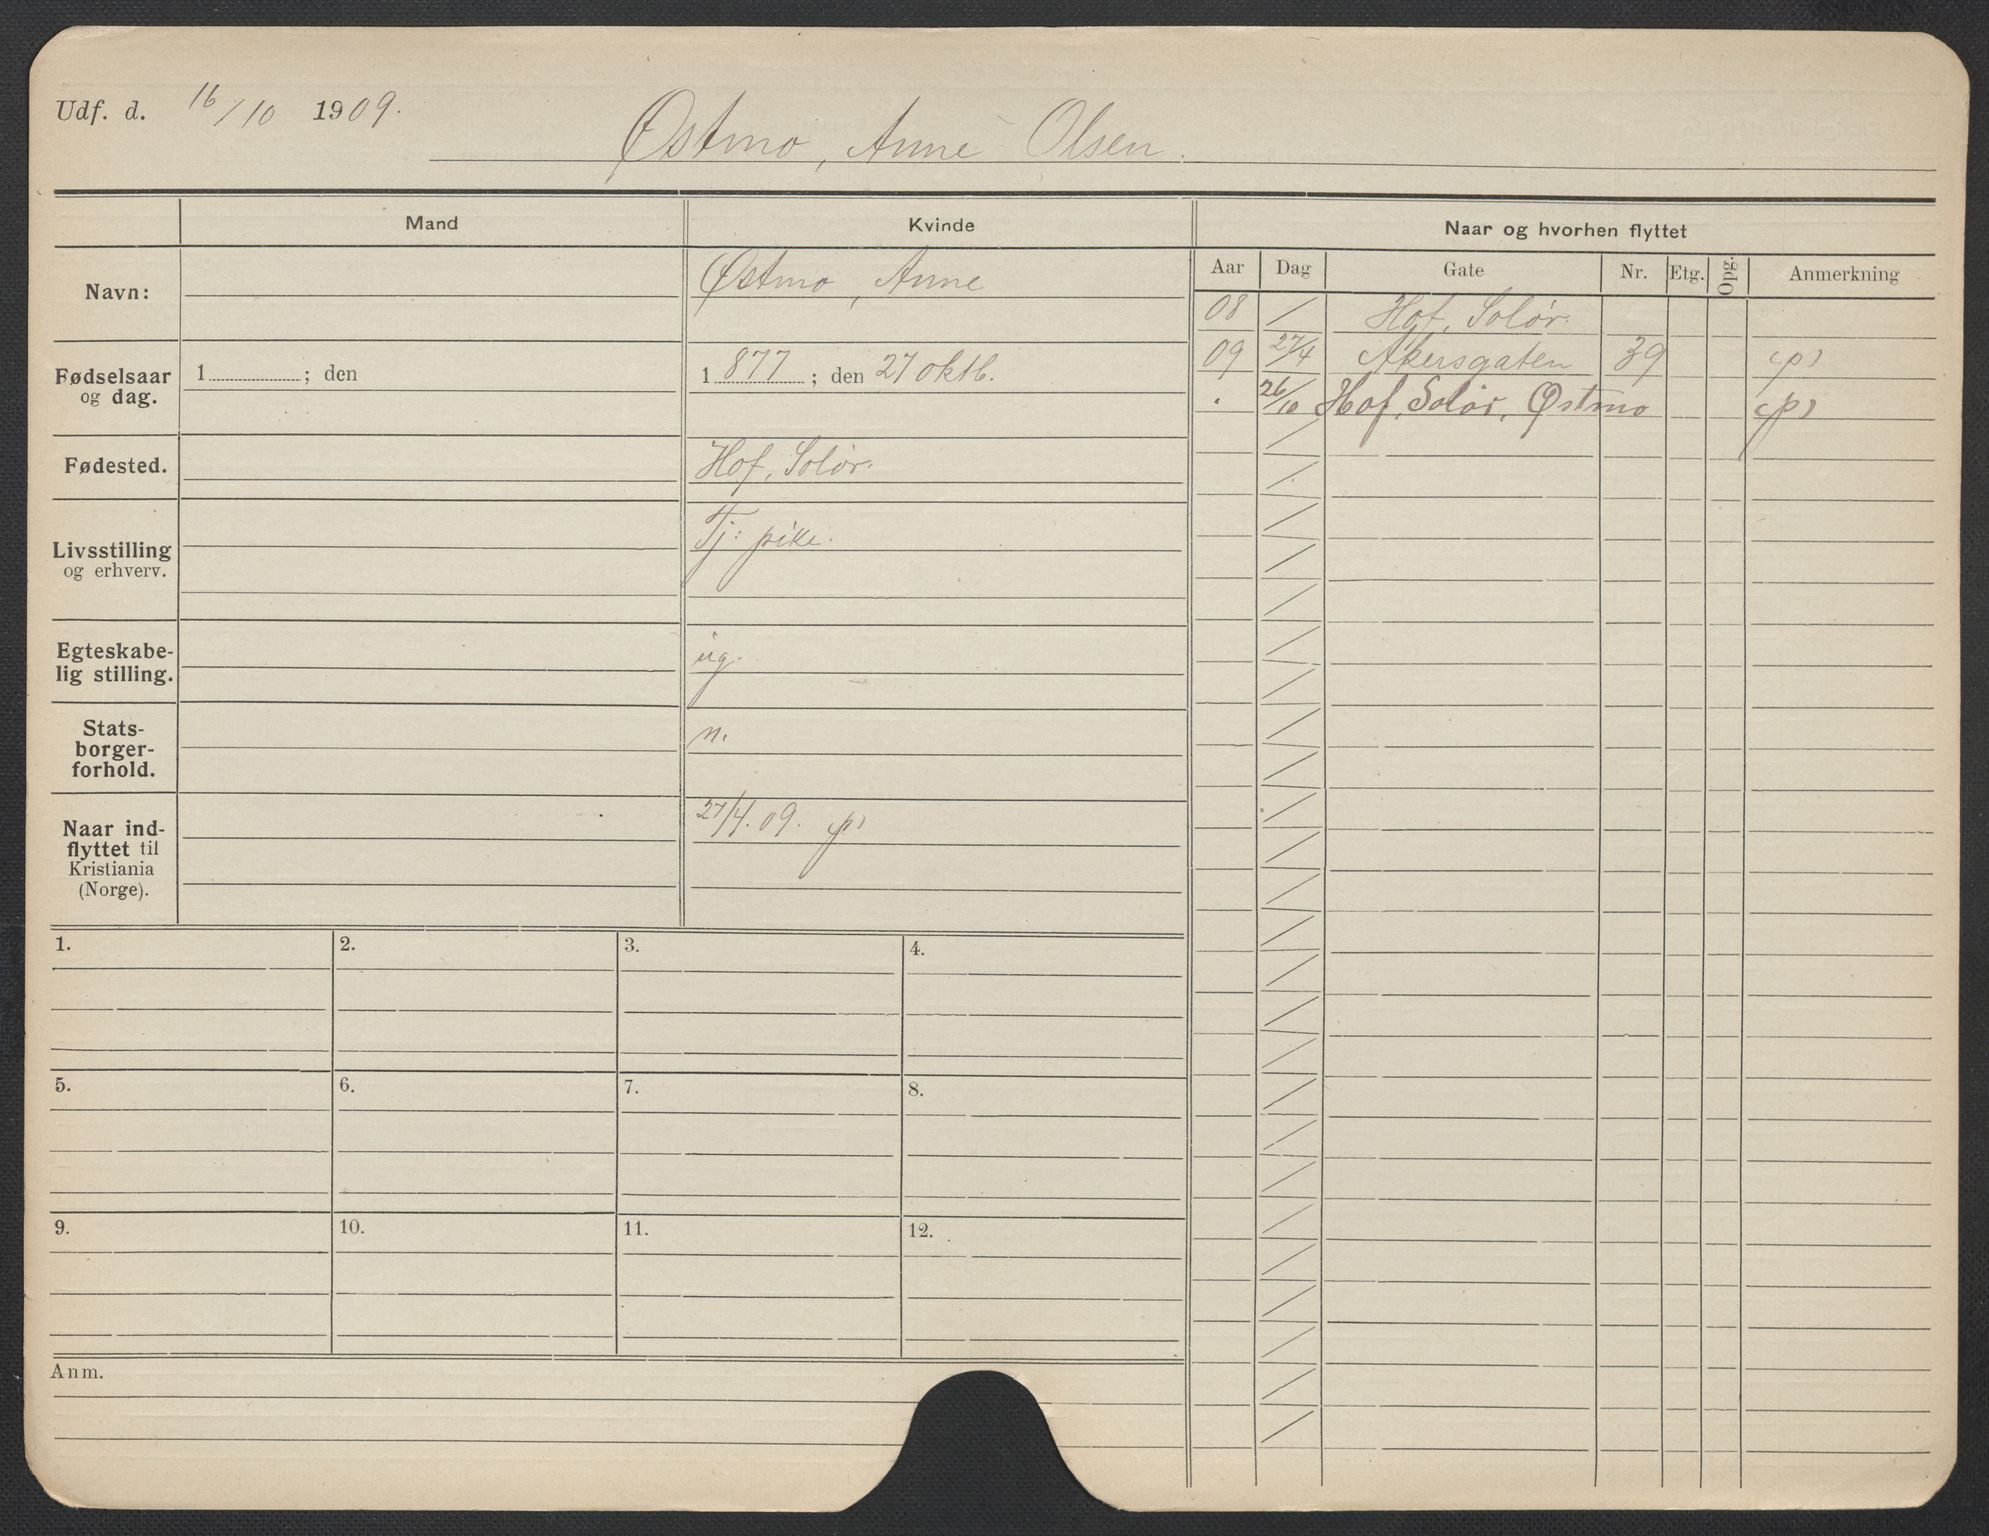 Udf. d. 16/10 1909.
Østmo, Anne Olsen.
Mand
Kvinde
Naar og hvorhen flyttet
Aar Dag Gate Nr. Etg. Opg. Anmerkning
Navn:
Østmo, Anne
Fødselsaar
og dag.
1 ; den
1877 ; den 27 oktb.
Fødested.
Hof, Solør.
Livsstilling
og erhverv.
Tj: pike.
Egteskabe-
lig stilling.
ug.
Stats-
borger-
forhold.
n.
Naar ind-
flyttet til
Kristiania
(Norge).
27/4.09. (p)
08 / Hof, Solør.
09 27/4 Akersgaten 39 (p)
. 26/10 Hof, Solør, Østmo (p)
1. 2. 3. 4.
5. 6. 7. 8.
9. 10. 11. 12.
Anm.